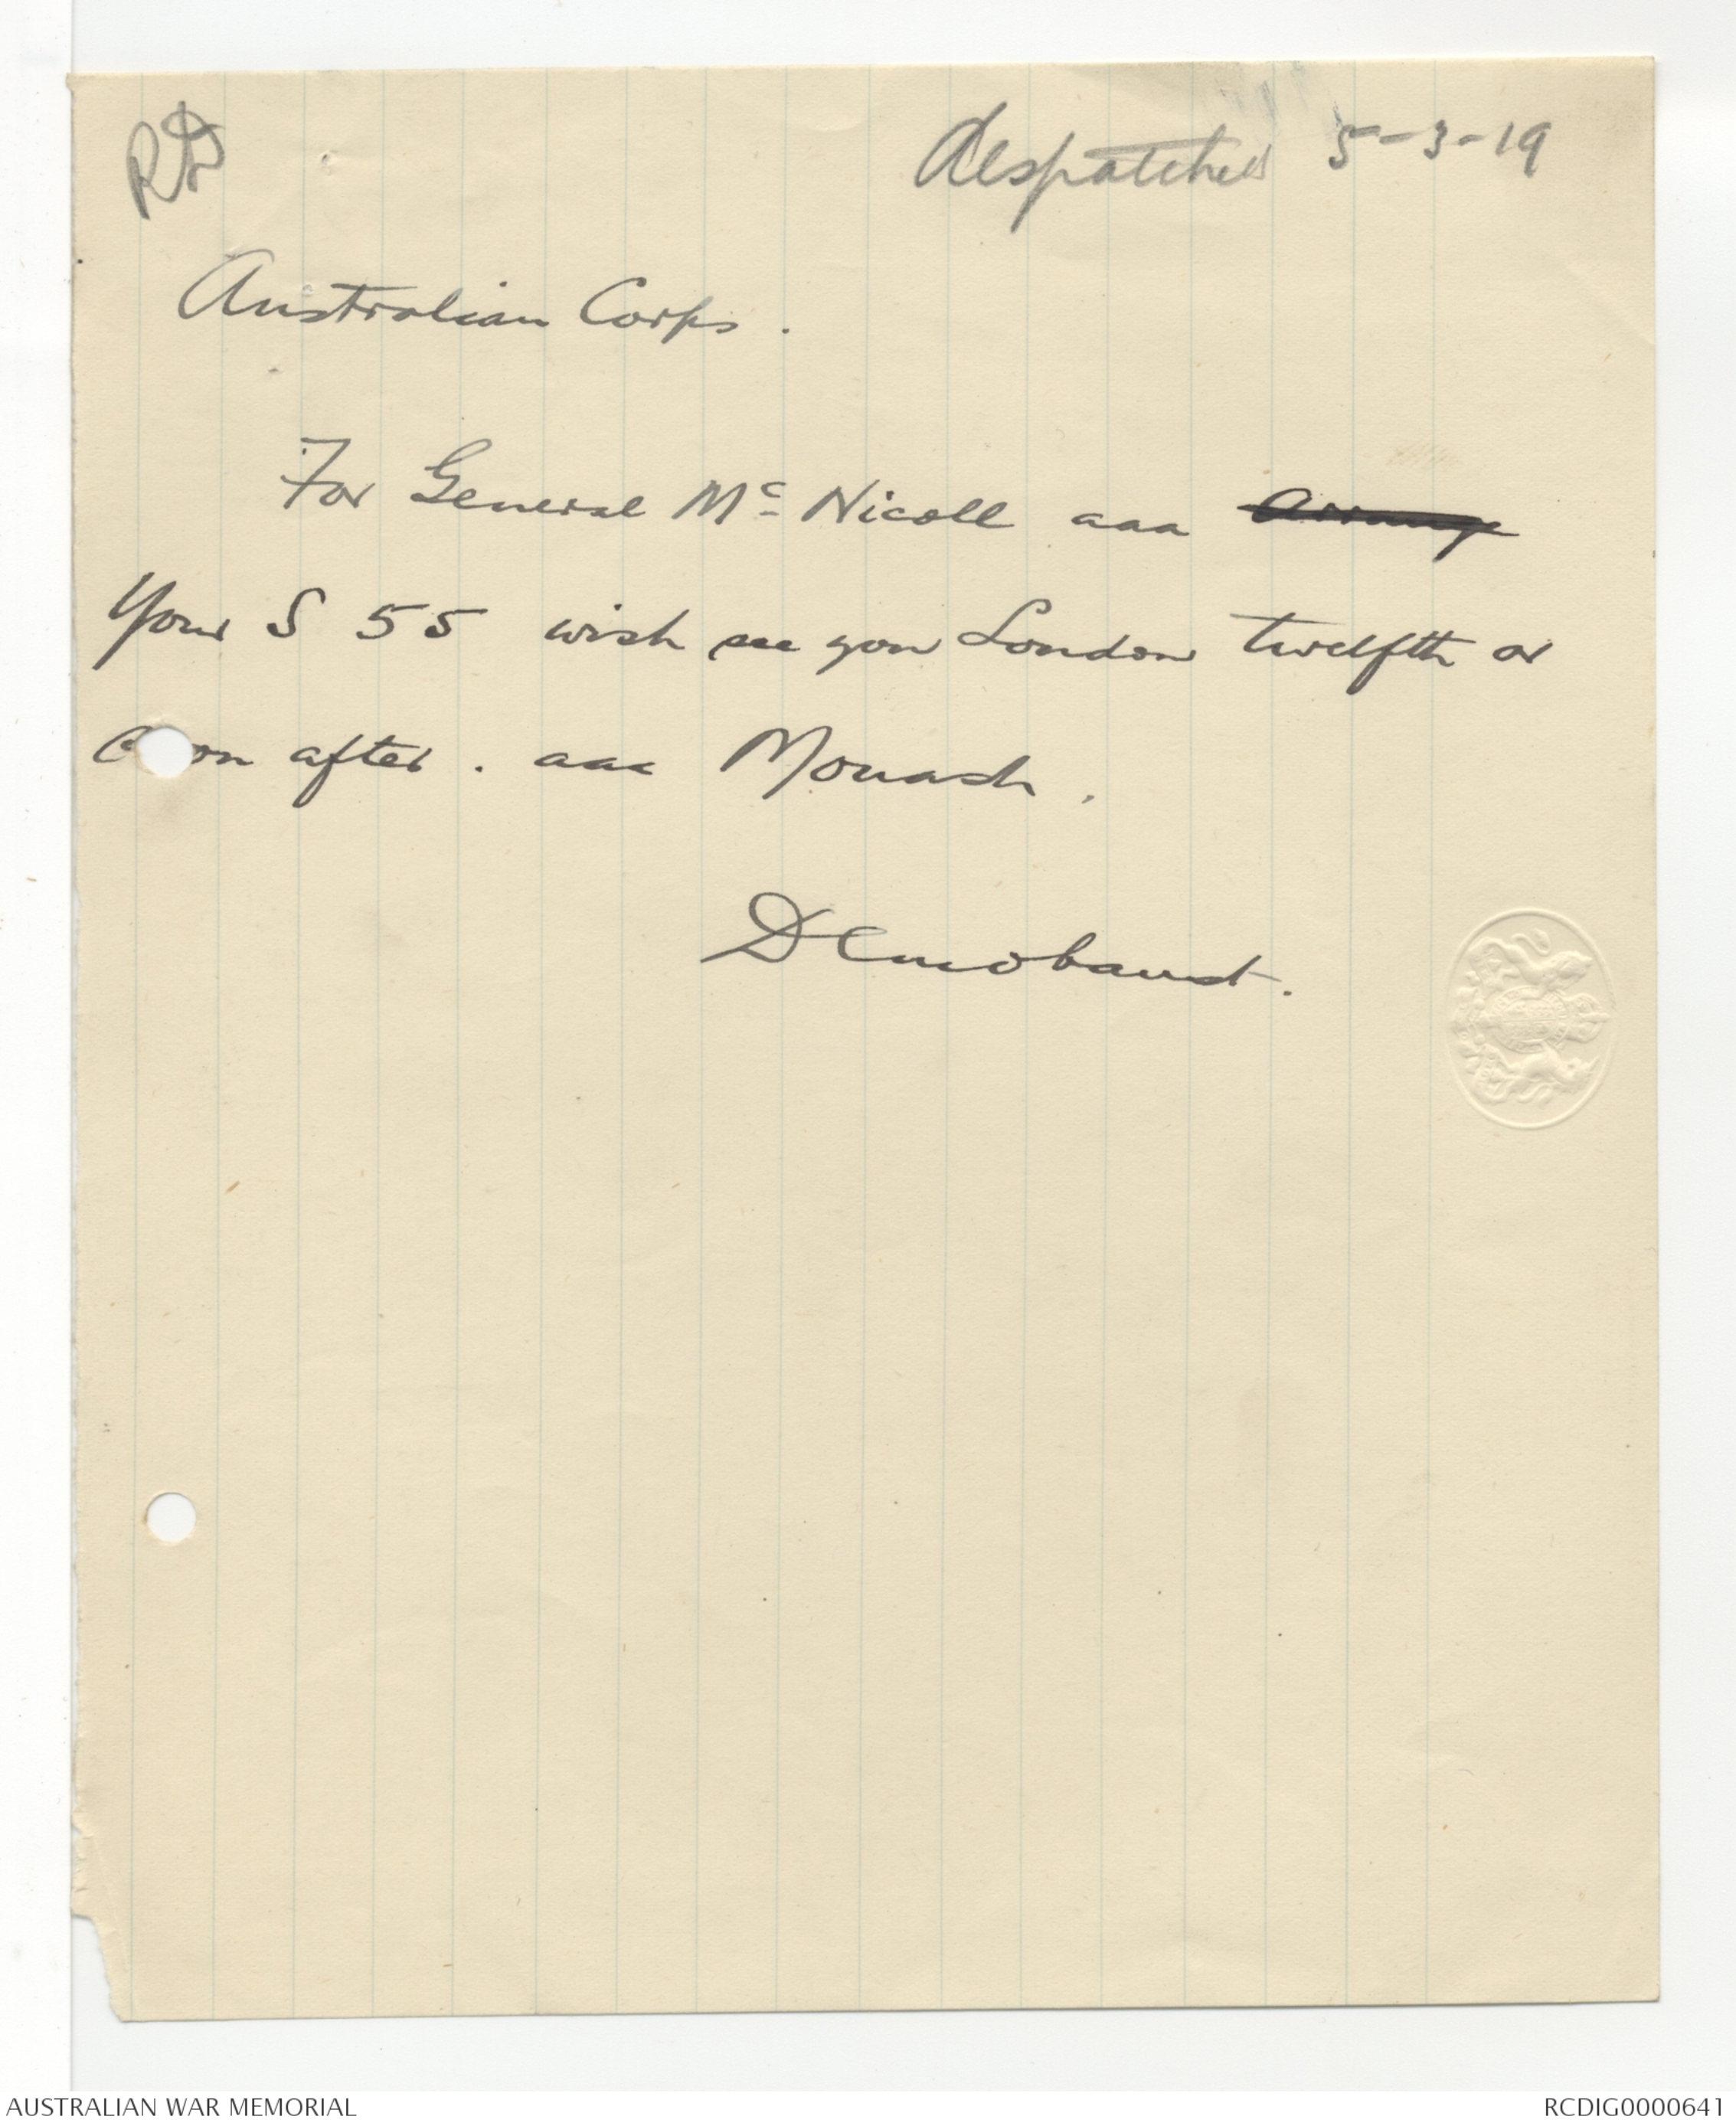 Despatched 5-3-19
Australian Corps.
For General Mc Nicoll aaa Arrange
Your S 55 wish see you London twelfth or
on after. aaa Monash.
Demobaust.
AUSTRALIAN WAR MEMORIAL
RCDIG0000641